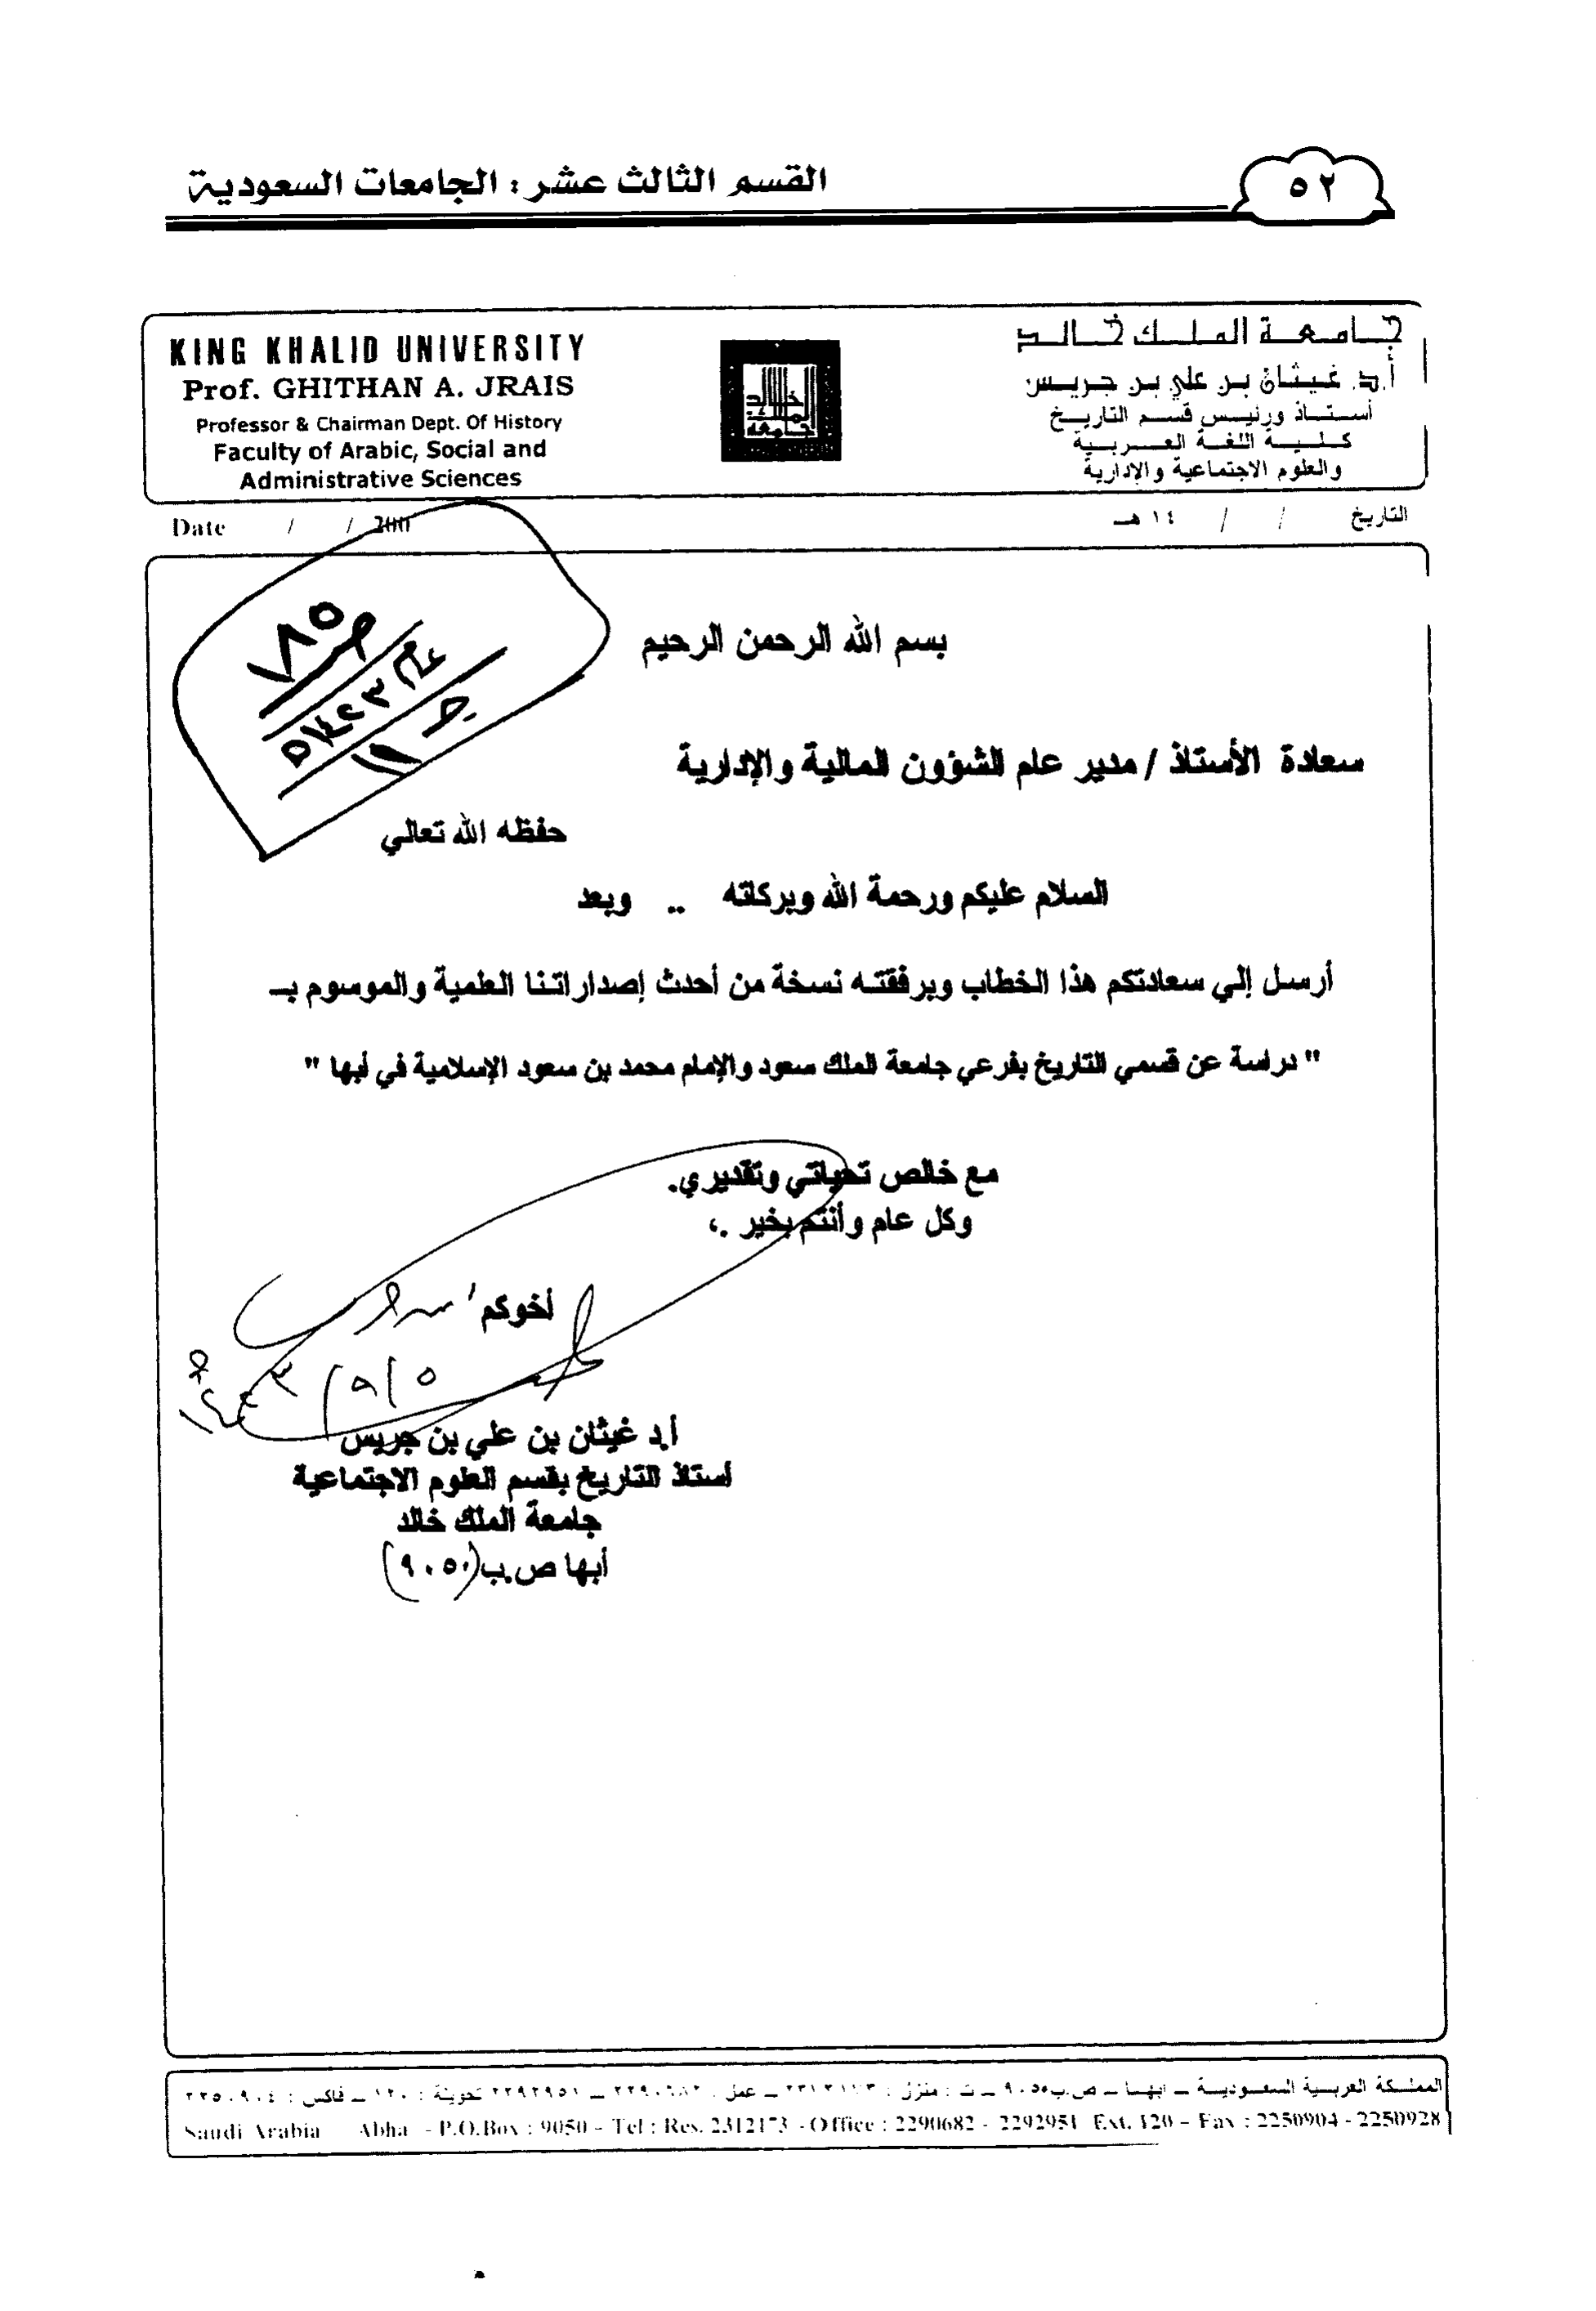 القسم الثالث عشر : الجامعات السعودية
٥٢
KING KHALID UNIVERSITY
Prof. GHITHAN A. JRAIS
Professor & Chairman Dept. Of History
Faculty of Arabic, Social and
Administrative Sciences
جامعة الملك خالد
أ.د. غيثان بن علي بن جريس
أستاذ ورئيس قسم التاريخ
كلية اللغة العربية
والعلوم الاجتماعية والإدارية
Date / / 200
التاريخ / / ١٤ هـ
ص ١٨٥
عام ١٤٢٣هـ
جـ ١١
بسم الله الرحمن الرحيم
سعادة الأستاذ / مدير عام الشؤون المالية والإدارية
حفظه الله تعالي
السلام عليكم ورحمة الله وبركاته .. وبعد
أرسل إلي سعادتكم هذا الخطاب وبرفقته نسخة من أحدث إصداراتنا العلمية والموسوم بـ
" دراسة عن قسمي التاريخ بفرعي جامعة الملك سعود والإمام محمد بن سعود الإسلامية في أبها "
مع خالص تحياتي وتقديري.
وكل عام وأنتم بخير .،
أخوكم
٥/٩/١٤٢٣هـ
أ.د غيثان بن علي بن جريس
أستاذ التاريخ بقسم العلوم الاجتماعية
جامعة الملك خالد
أبها ص.ب (٩٠٥٠)
المملكة العربية السعودية – ابها – ص.ب ٩٠٥٠ – ت : منزل : ٢٣١٢١٧٣ – عمل : ٢٢٩٠٦٨٢ – ٢٢٩٢٩٥١ تحويلة : ١٢٠ – فاكس : ٢٢٥٠٩٠٤
Saudi Arabia Abha - P.O.Box : 9050 – Tel : Res. 2312173 - Office : 2290682 - 2292951 Ext. 120 – Fax : 2250904 - 2250928